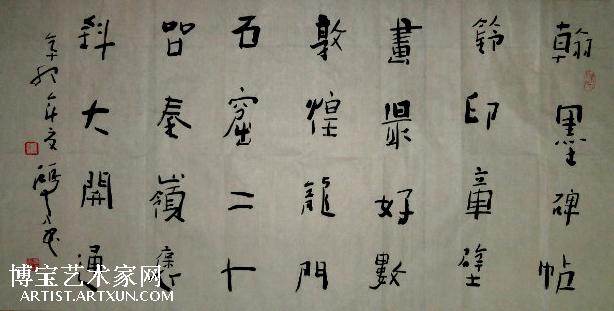 翰墨碑帖
鈐印章壁
畫最好數
敦煌龍門
石窟二十
品秦嶺褒
斜大開通
辛卯年夏
博宝艺术家网
ARTIST.ARTXUN.COM